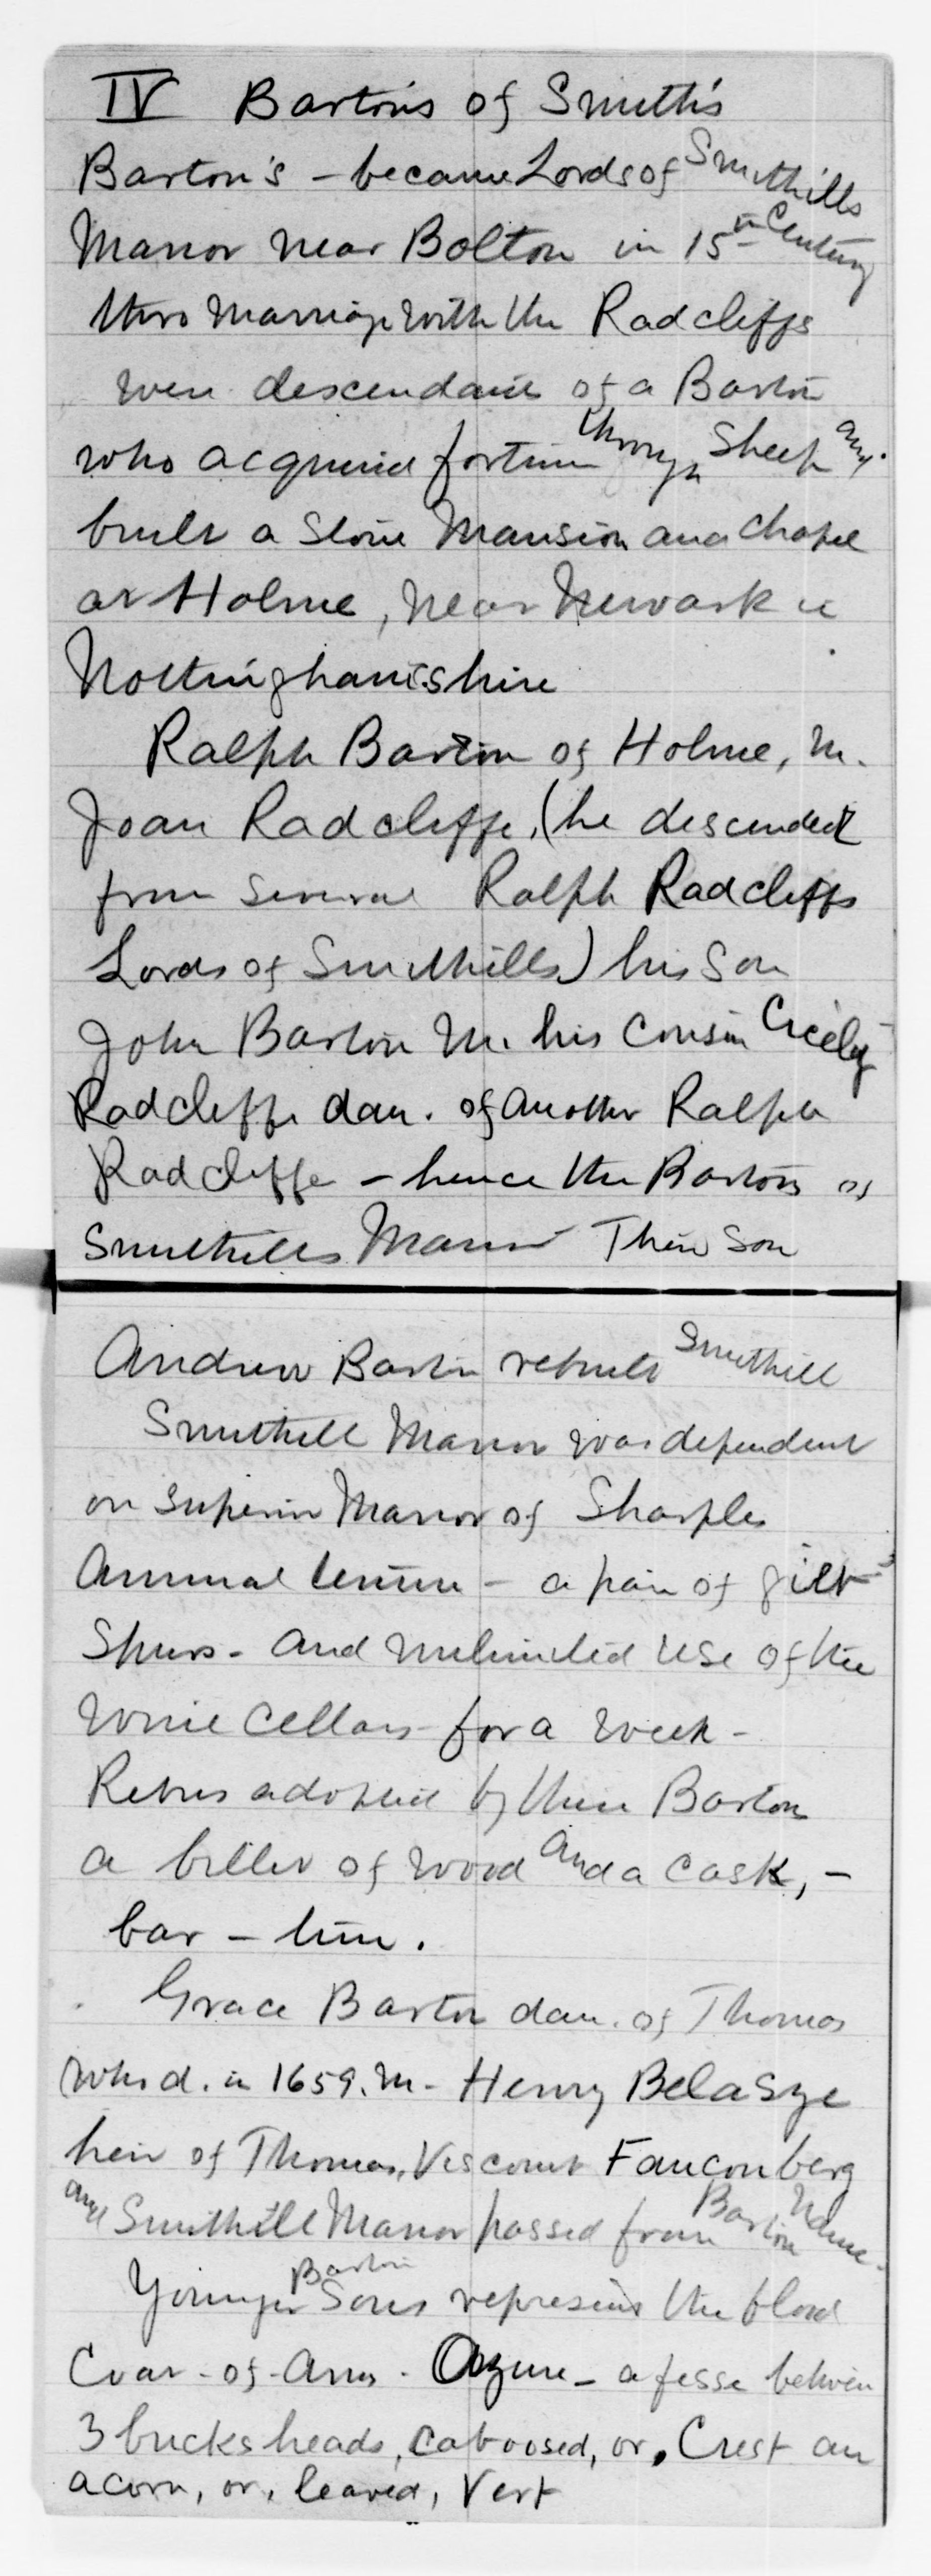 IV Barton's of Smith's
Barton's - became Lords of Smithills
Manor near Bolton in 15th Century
thro marriage with the Radcliffs
were descendants of a Barton
who acquired fortune through Sheep and
built a Stone Mansion and Chapel
at Holme, near Newark in
Nottinghamshire
Ralph Barton of Holme, m.
Joan Radcliffe, (he descended
from several Ralph Radcliffs
Lords of Smithills) his son
John Barton m. his cousin Cicely
Radcliffe dau. of another Ralph
Radcliffe - hence the Bartons of
Smithills Manor Their son
Andrew Barton rebuilt Smithill
Smithill Manor was dependent
on superior Manor of Sharples
Annual tenure - a pair of gilt
Spurs - and unlimited use of the
Wine Cellars for a week -
Rebus adopted by these Bartons
a billet of wood and a cask, -
bar - tun.
Grace Barton dau. of Thomas
who d. in 1659. m - Henry Belasye
heir of Thomas, Viscount Fauconberg
and Smithill Manor passed from Barton Name.
Younger Barton Sons represents the blood
Coat - of - Arms - Azure - a fesse between
3 bucks heads, caboosed, or, Crest an
acorn, or, leaved, Vert